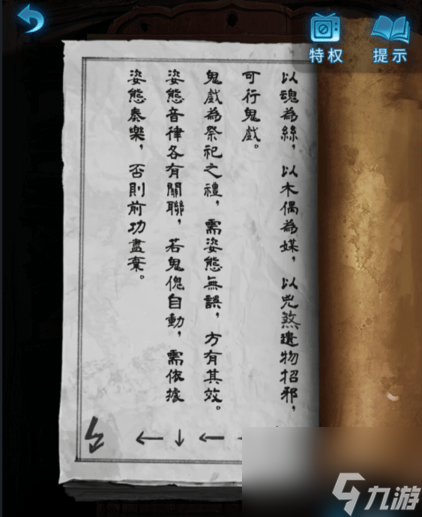 特权
提示
以魂為絲，以木偶為媒，以兇煞遺物招邪，
可行鬼戲。
鬼戲為祭祀之禮，需姿態無誤，方有其效。
姿態音律各有關聯，若鬼傀自動，需依據
姿態奏樂，否則前功盡棄。
九游